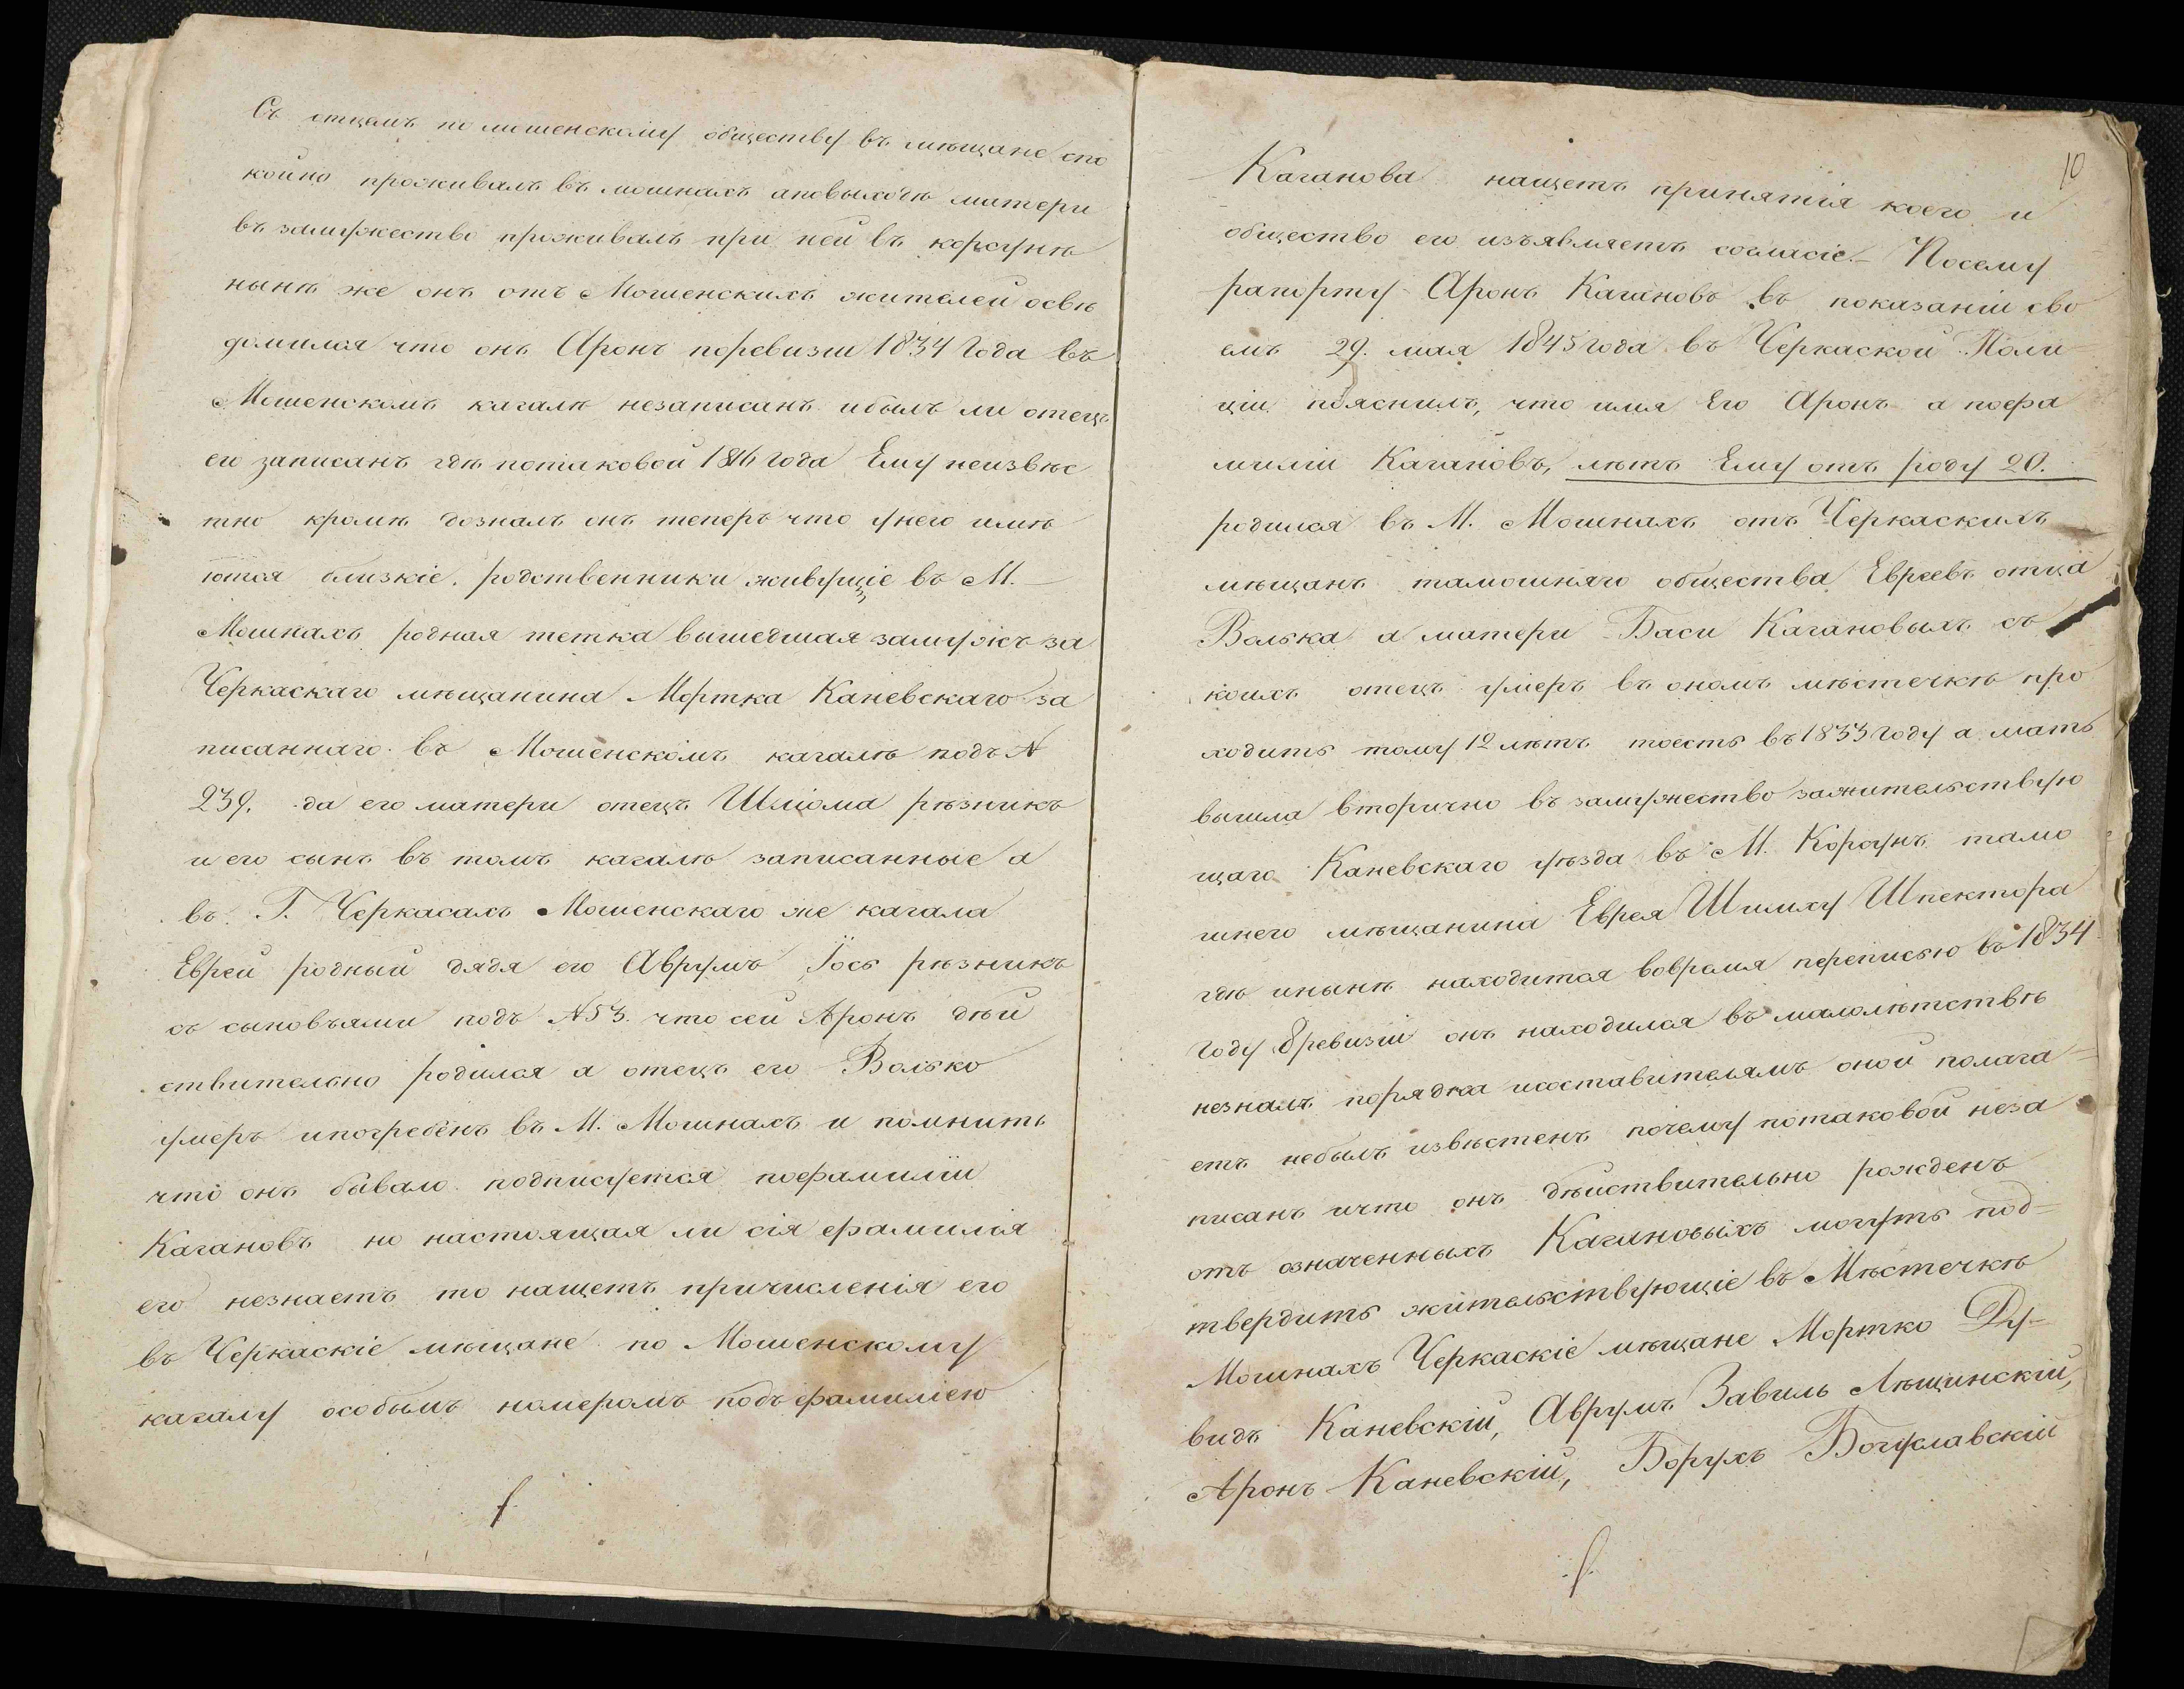 Съ отцемъ по мошенскому обществу въ мѣщане спо
койно проживалъ въ мошнахъ аповыходѣ матери
въ замужество проживалъ при ней въ корсунѣ
нынѣ же онъ отъ Мошенскихъ жителей освѣ
домился что онъ Аронъ поревизіи 1834 Года въ
Мошенскомъ кагалѣ незаписанъ ибылъ ли отецъ
его записанъ гдѣ потаковой 1816 Года Ему неизвѣс
тно кромѣ дозналъ онъ теперъ что унего имѣ
ются близкіе родственники живущіе въ М.
Мошнахъ родная тетка вышедшая замужъ за
Черкаскаго мѣщанина Мортка Каневскаго за
писаннаго въ Мошенскомъ кагалѣ подъ N
239. да его матери отецъ Шліома рѣзникъ
и его сынъ въ томъ кагалѣ записанные а
въ Г. Черкасахъ Мошенскаго же кагала
Еврей родный дядя его Аврумъ Іось рѣзникъ
съ сыновъями подъ N 53. что сей Аронъ дѣй
ствительно родился а отецъ его Волько
умеръ ипогребенъ въ М. Мошнахъ и помнитъ
что онъ бывало подписуется пофамиліи
Кагановъ но настоящая ли сія фамилія
его незнаетъ то нащетъ причисленія его
въ Черкаскіе мѣщане по Мошенскому
кагалу особымъ номеромъ подъ фамиліею
10
Каганова нащетъ принятія коего и
общество его изъявляетъ согласіе. – Посему
рапорту Аронъ Кагановъ въ показаніи сво
емъ 29. мая 1845 года въ Черкаской Поли
ціи пояснилъ, что имя Его Аронъ а пофа
миліи Кагановъ, лѣтъ Ему отъ роду 20.
родился въ М. Мошнахъ отъ Черкаскихъ
мѣщанъ тамошняго общества Евреевъ отца
Волька а матери Баси Кагановыхъ съ
коихъ отецъ умеръ въ ономъ мѣстечкѣ про
ходитъ тому 12 лѣтъ тоесть въ 1833 Году а мать
вышла вторично въ замужество зажительствую
щаго Каневскаго уѣзда въ М. Корсунѣ тамо
шнего мѣщанина Еврея Шимху Шпектора
гдѣ инынѣ находится вовремя переписью въ 1834
Году 8 ревизіи онъ находился въ малолѣтствѣ
незналъ порядка исоставителямъ оной полага
етъ небылъ извѣстенъ почему потаковой неза
писанъ ичто онъ дѣйствительно рожденъ
отъ означенныхъ Кагановыхъ могутъ под-
твердить жительствующіе въ Мѣстечкѣ
Мошнахъ Черкаскіе мѣщане Мортко Ду-
видъ Каневскій, Аврумъ Завиль Лѣщинскій,
Аронъ Каневскій, Борухъ Богуславскій